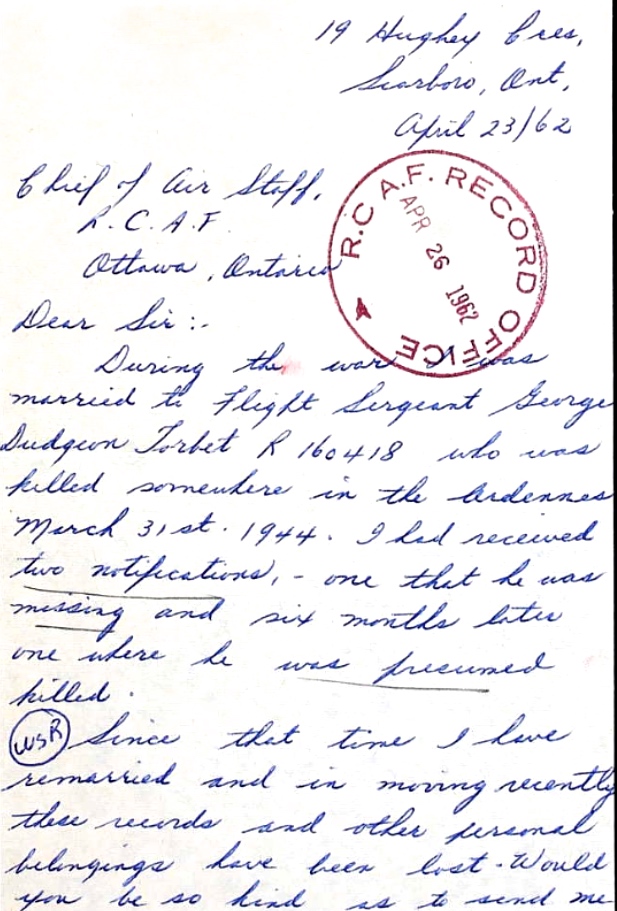 19 Hughey Cres,
Scarboro, Ont,
April 23/62
Chief of Air Staff,
R.C.A.F.
Ottawa, Ontario
R.C.A.F. RECORD OFFICE
APR 26 1962
Dear Sir:-
During the war I was
married to Flight Sergeant George
Dudgeon Torbet R 160418 who was
killed somewhere in the Ardennes
March 31st. 1944. I had received
two notifications, - one that he was
missing and six months later
one where he was presumed
killed.
WSR Since that time I have
remarried and in moving recently
these records and other personal
belongings have been lost. Would
you be so kind as to send me